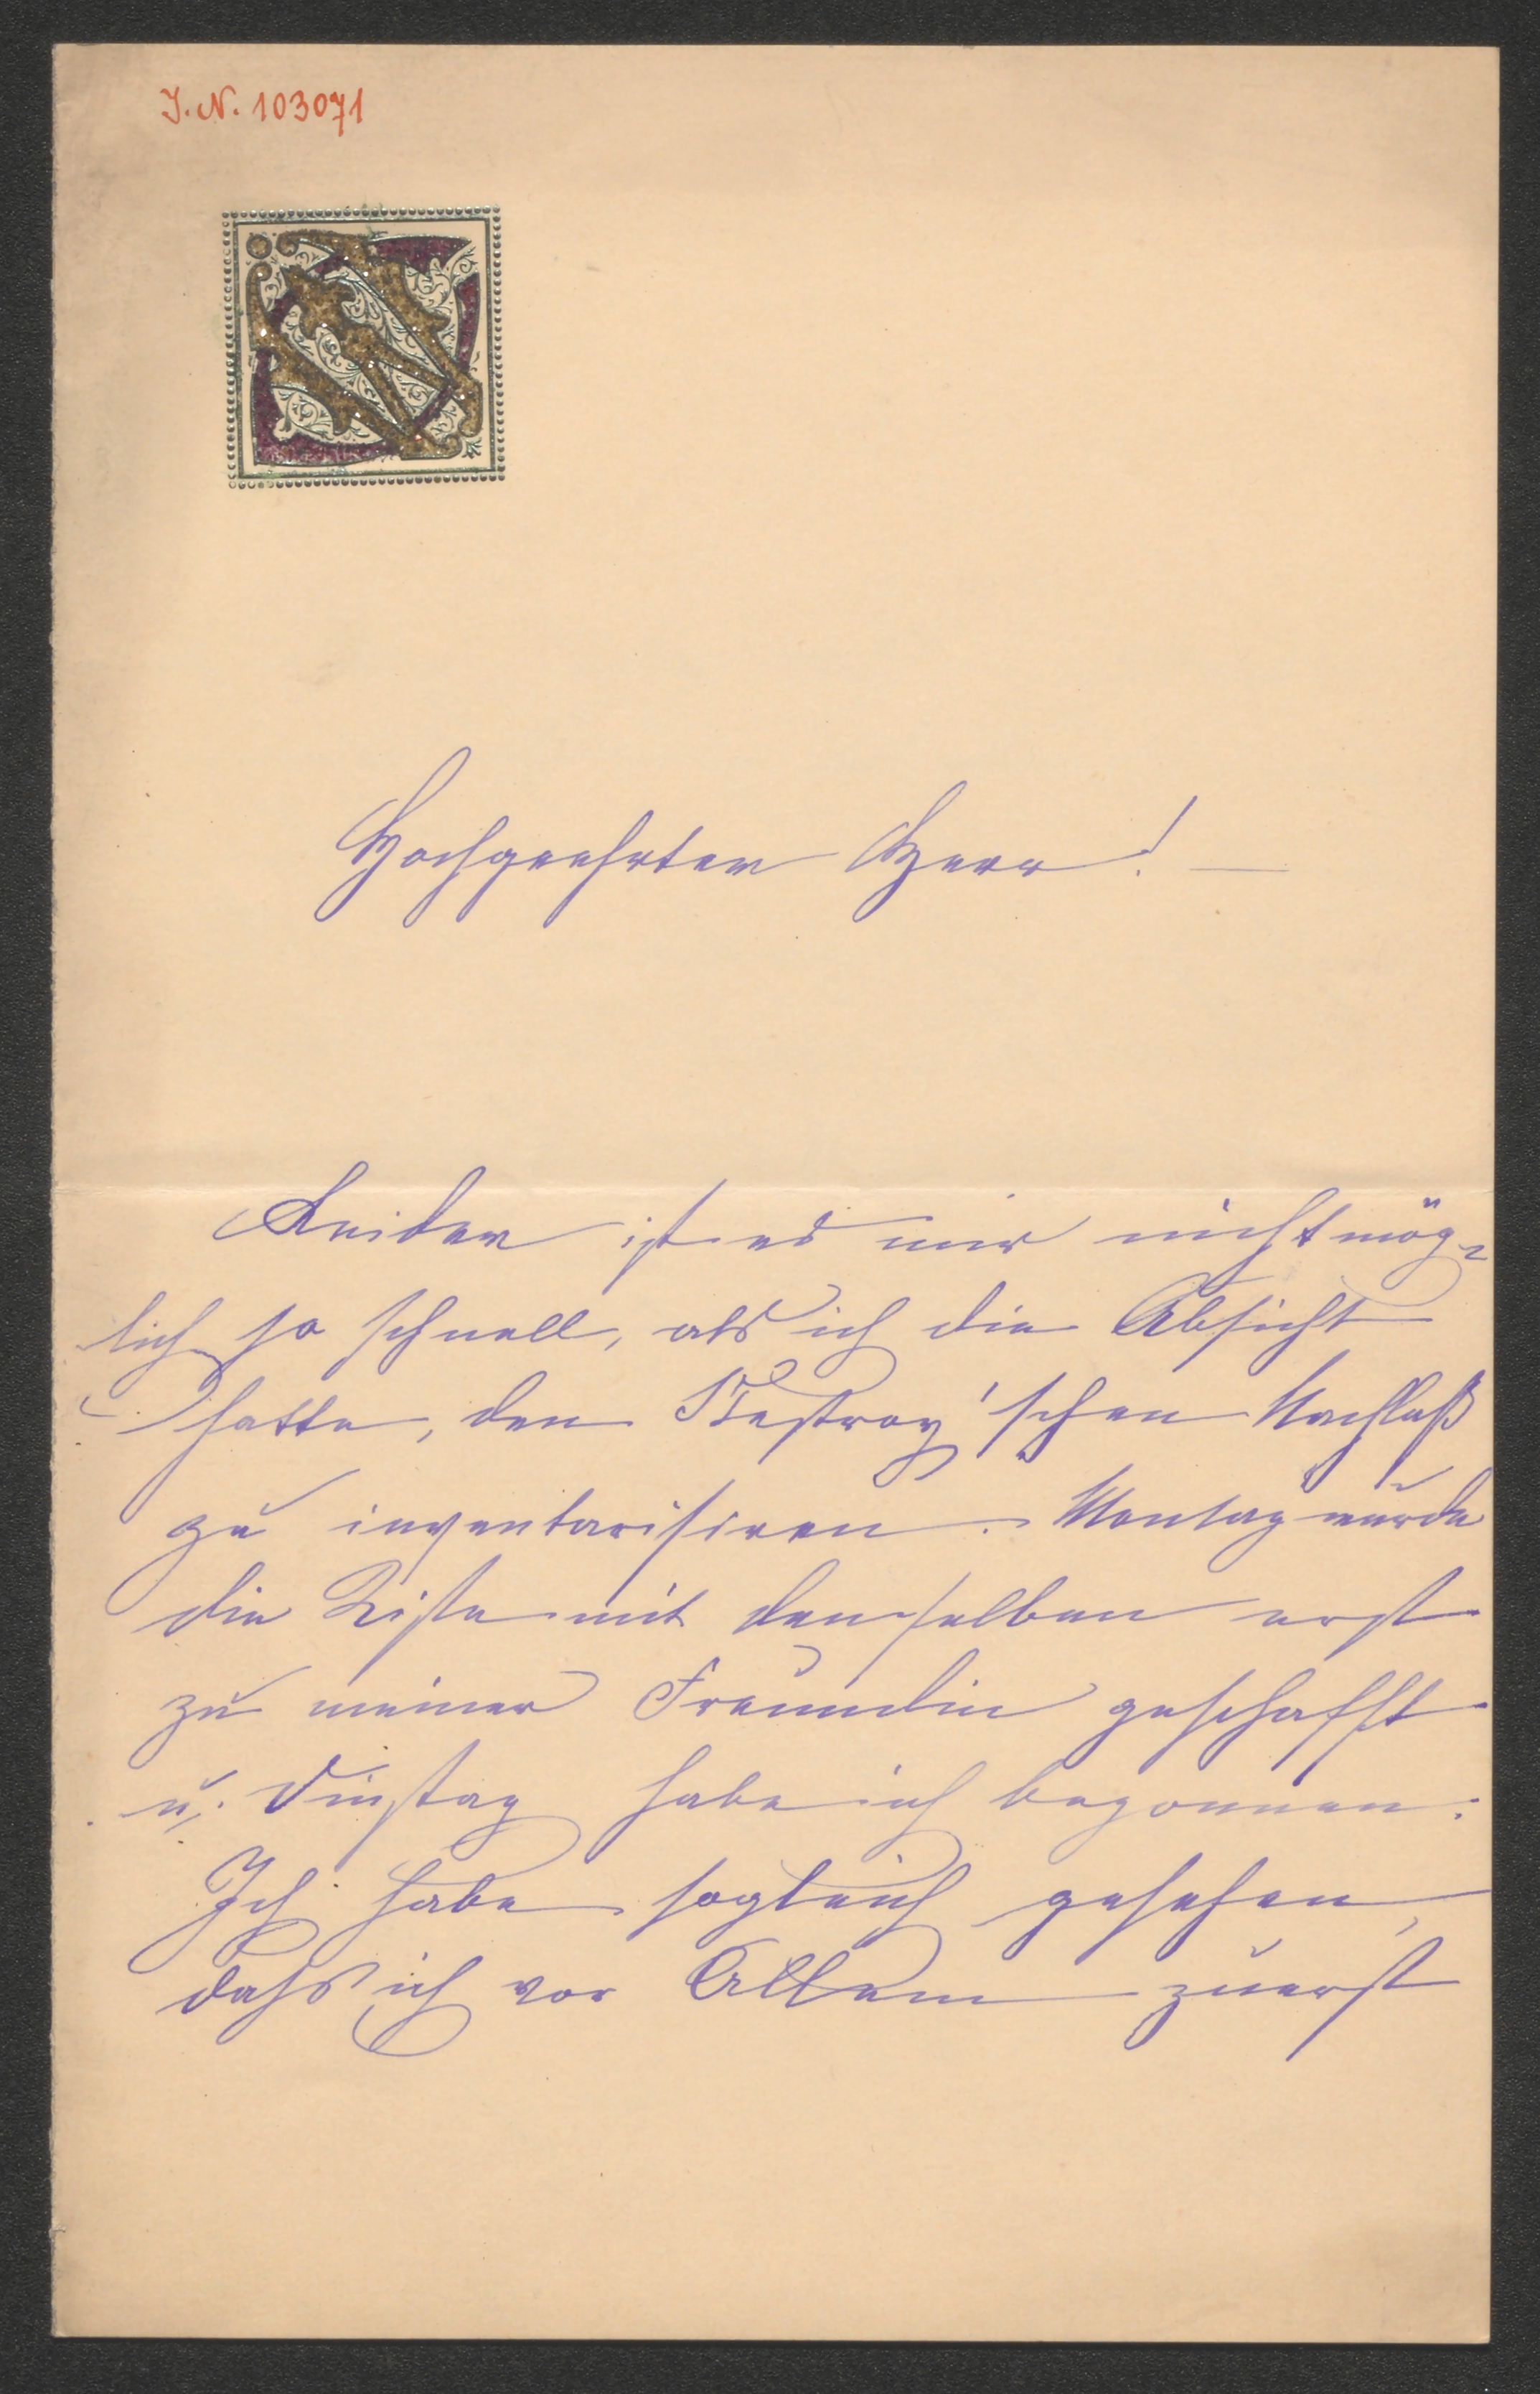 J. N. 103071
Hochgeehrter Herr! —
Leider ist es mir nicht mög-
lich so schnell, als ich die Absicht
hatte, den Nestroy'schen Nachlaß
zu inventarisiren. Montag wurde
die Kiste mit demselben erst
zu meiner Freundin geschafft
u. Dinstag habe ich begonnen.
Ich habe sogleich gesehen,
dass ich vor Allem zuerst